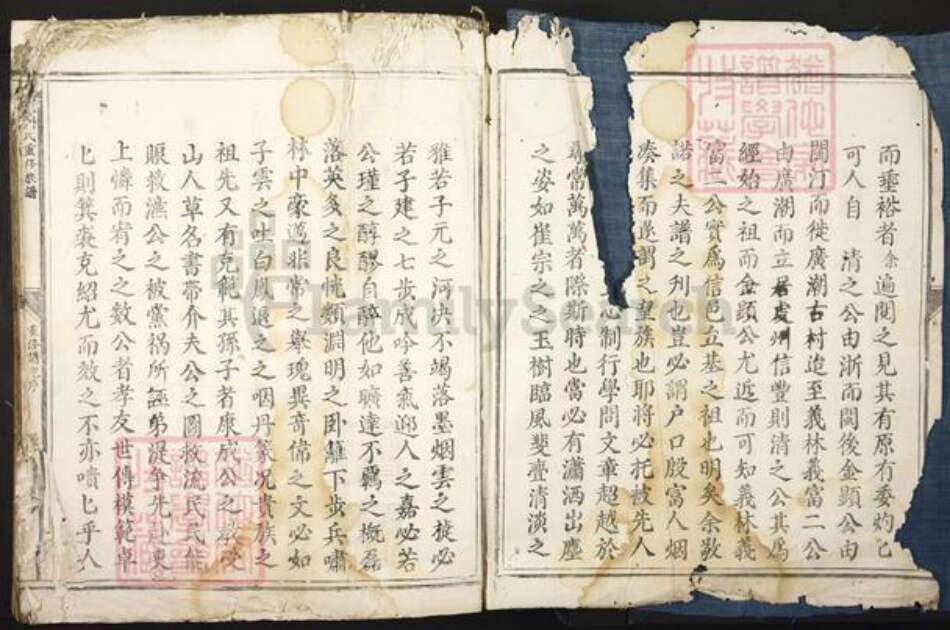 而垂裕者余遍閱之見其有原有委灼匕
可人自　清之公由浙而閩後金顯公由
閩汀而徙廣潮古村造至義林義富二公
由廣潮而立居虔州信豐則清之公其爲
經始之祖而金顕公尤近而可知義林義
富二公實爲信邑立基之祖也明矣余敢
諾之夫譜之刋也豈必謂户口殷富人烟
凑集而遂謂之望族也耶將必托被先人
心制行學問文章超越於
尋常萬萬者際斯時也當必有瀟洒出塵
之姿如崔宗之之玉樹臨風斐亹清淡之
雅若子元之河决不竭落墨烟雲之旋必
若子建之七步成吟善氣迎人之嘉必若
公瑾之醇醪自醉他如曠達不羈之概磊
落英多之良恍類淵明之卧籬下步兵嘯
林中豪邁非常之嶽瑰異竒偉之文必如
子雲之吐白鳳退之之咽丹篆况貴族之
祖先又有克範其孫子者康成公之
山人草各書帶介夫公之圖救流民民能
賑救濂公之被黨祸所誣弟湜争先赴東
上憐而宥之之数公者孝友世傳模範卓
匕則箕裘克紹尤而效之不亦噴匕乎人
氏重修族譜
重修譜序
FamilySearch